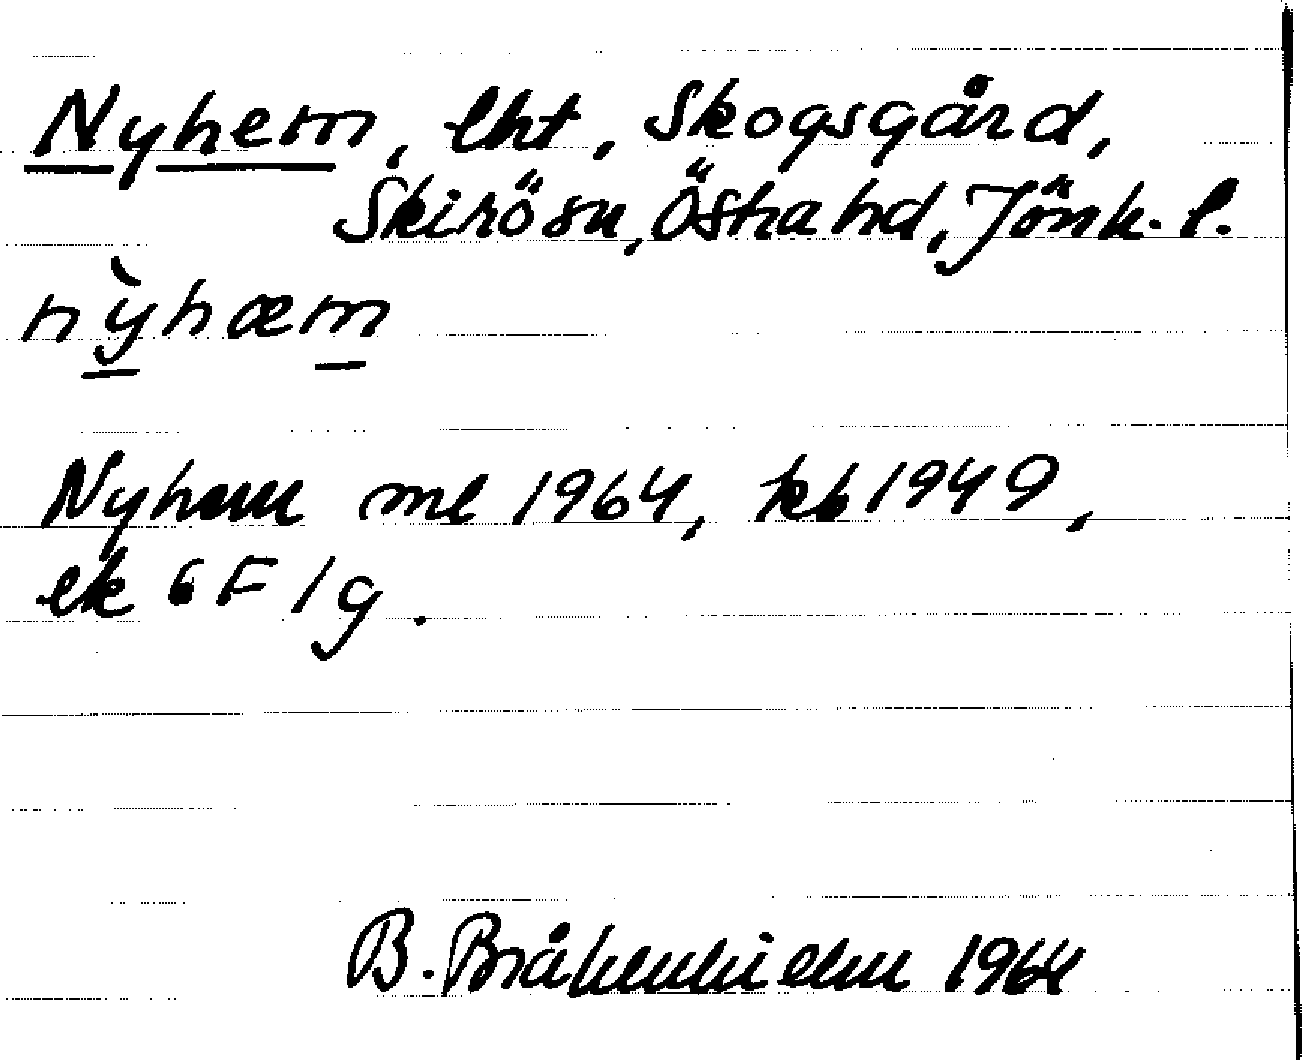 Nyhem, lht, Skogsgård,
Skirö sn, Östra hd, Jönk. l.
nỳhæm
Nyhem ml 1964, kb 1949,
ek 6 F 1 g.
B. Bråkenhielm 1964